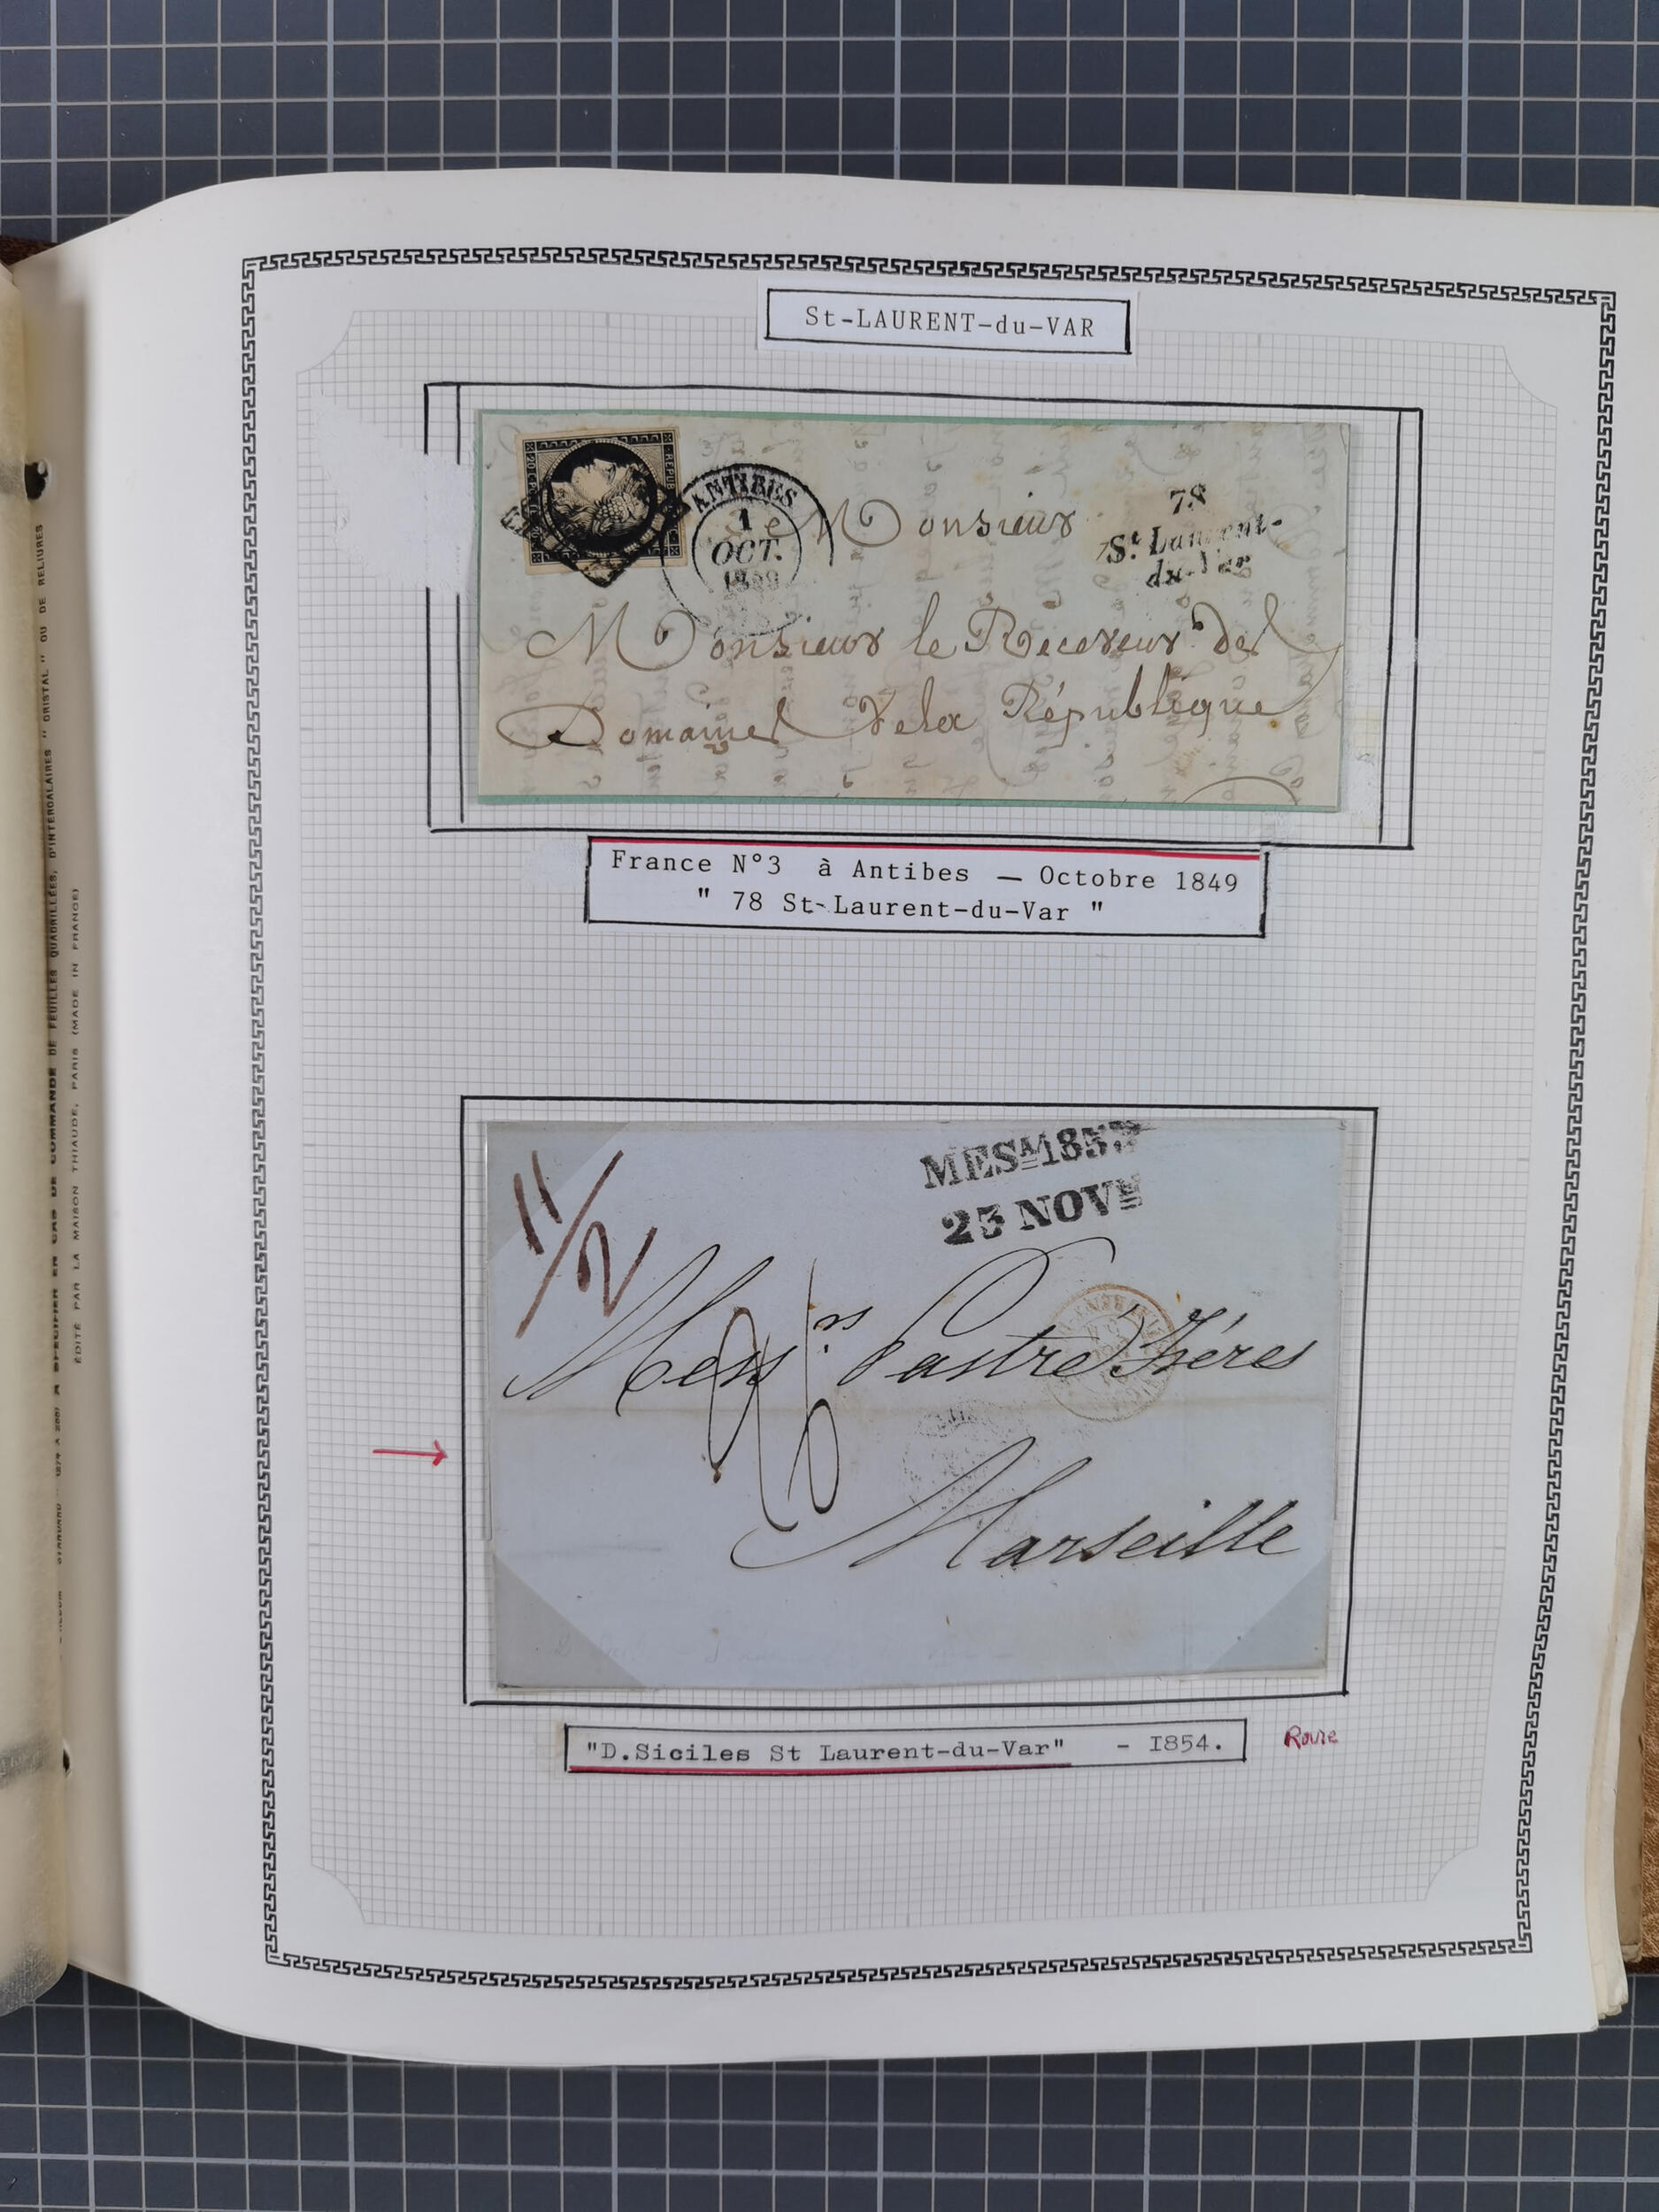 St-LAURENT-du-VAR
REPUB
ANTIBES
1
OCT.
78
St Laurent-
du-Var
Monsieur
Monsieur le Receveur des
Domaines de la République
France N°3 à Antibes — Octobre 1849
" 78 St-Laurent-du-Var "
MESA 1853
23 NOVE
11/2
Messrs Pastré Frères
Marseille
"D.Siciles St Laurent-du-Var" - 1854.
Rouge
DE COMMANDE DE FEUILLES QUADRILLÉES, D'INTERCALAIRES " CRISTAL " OU DE RELIURES
ÉDITÉ PAR LA MAISON THIAUDE, PARIS (MADE IN FRANCE)